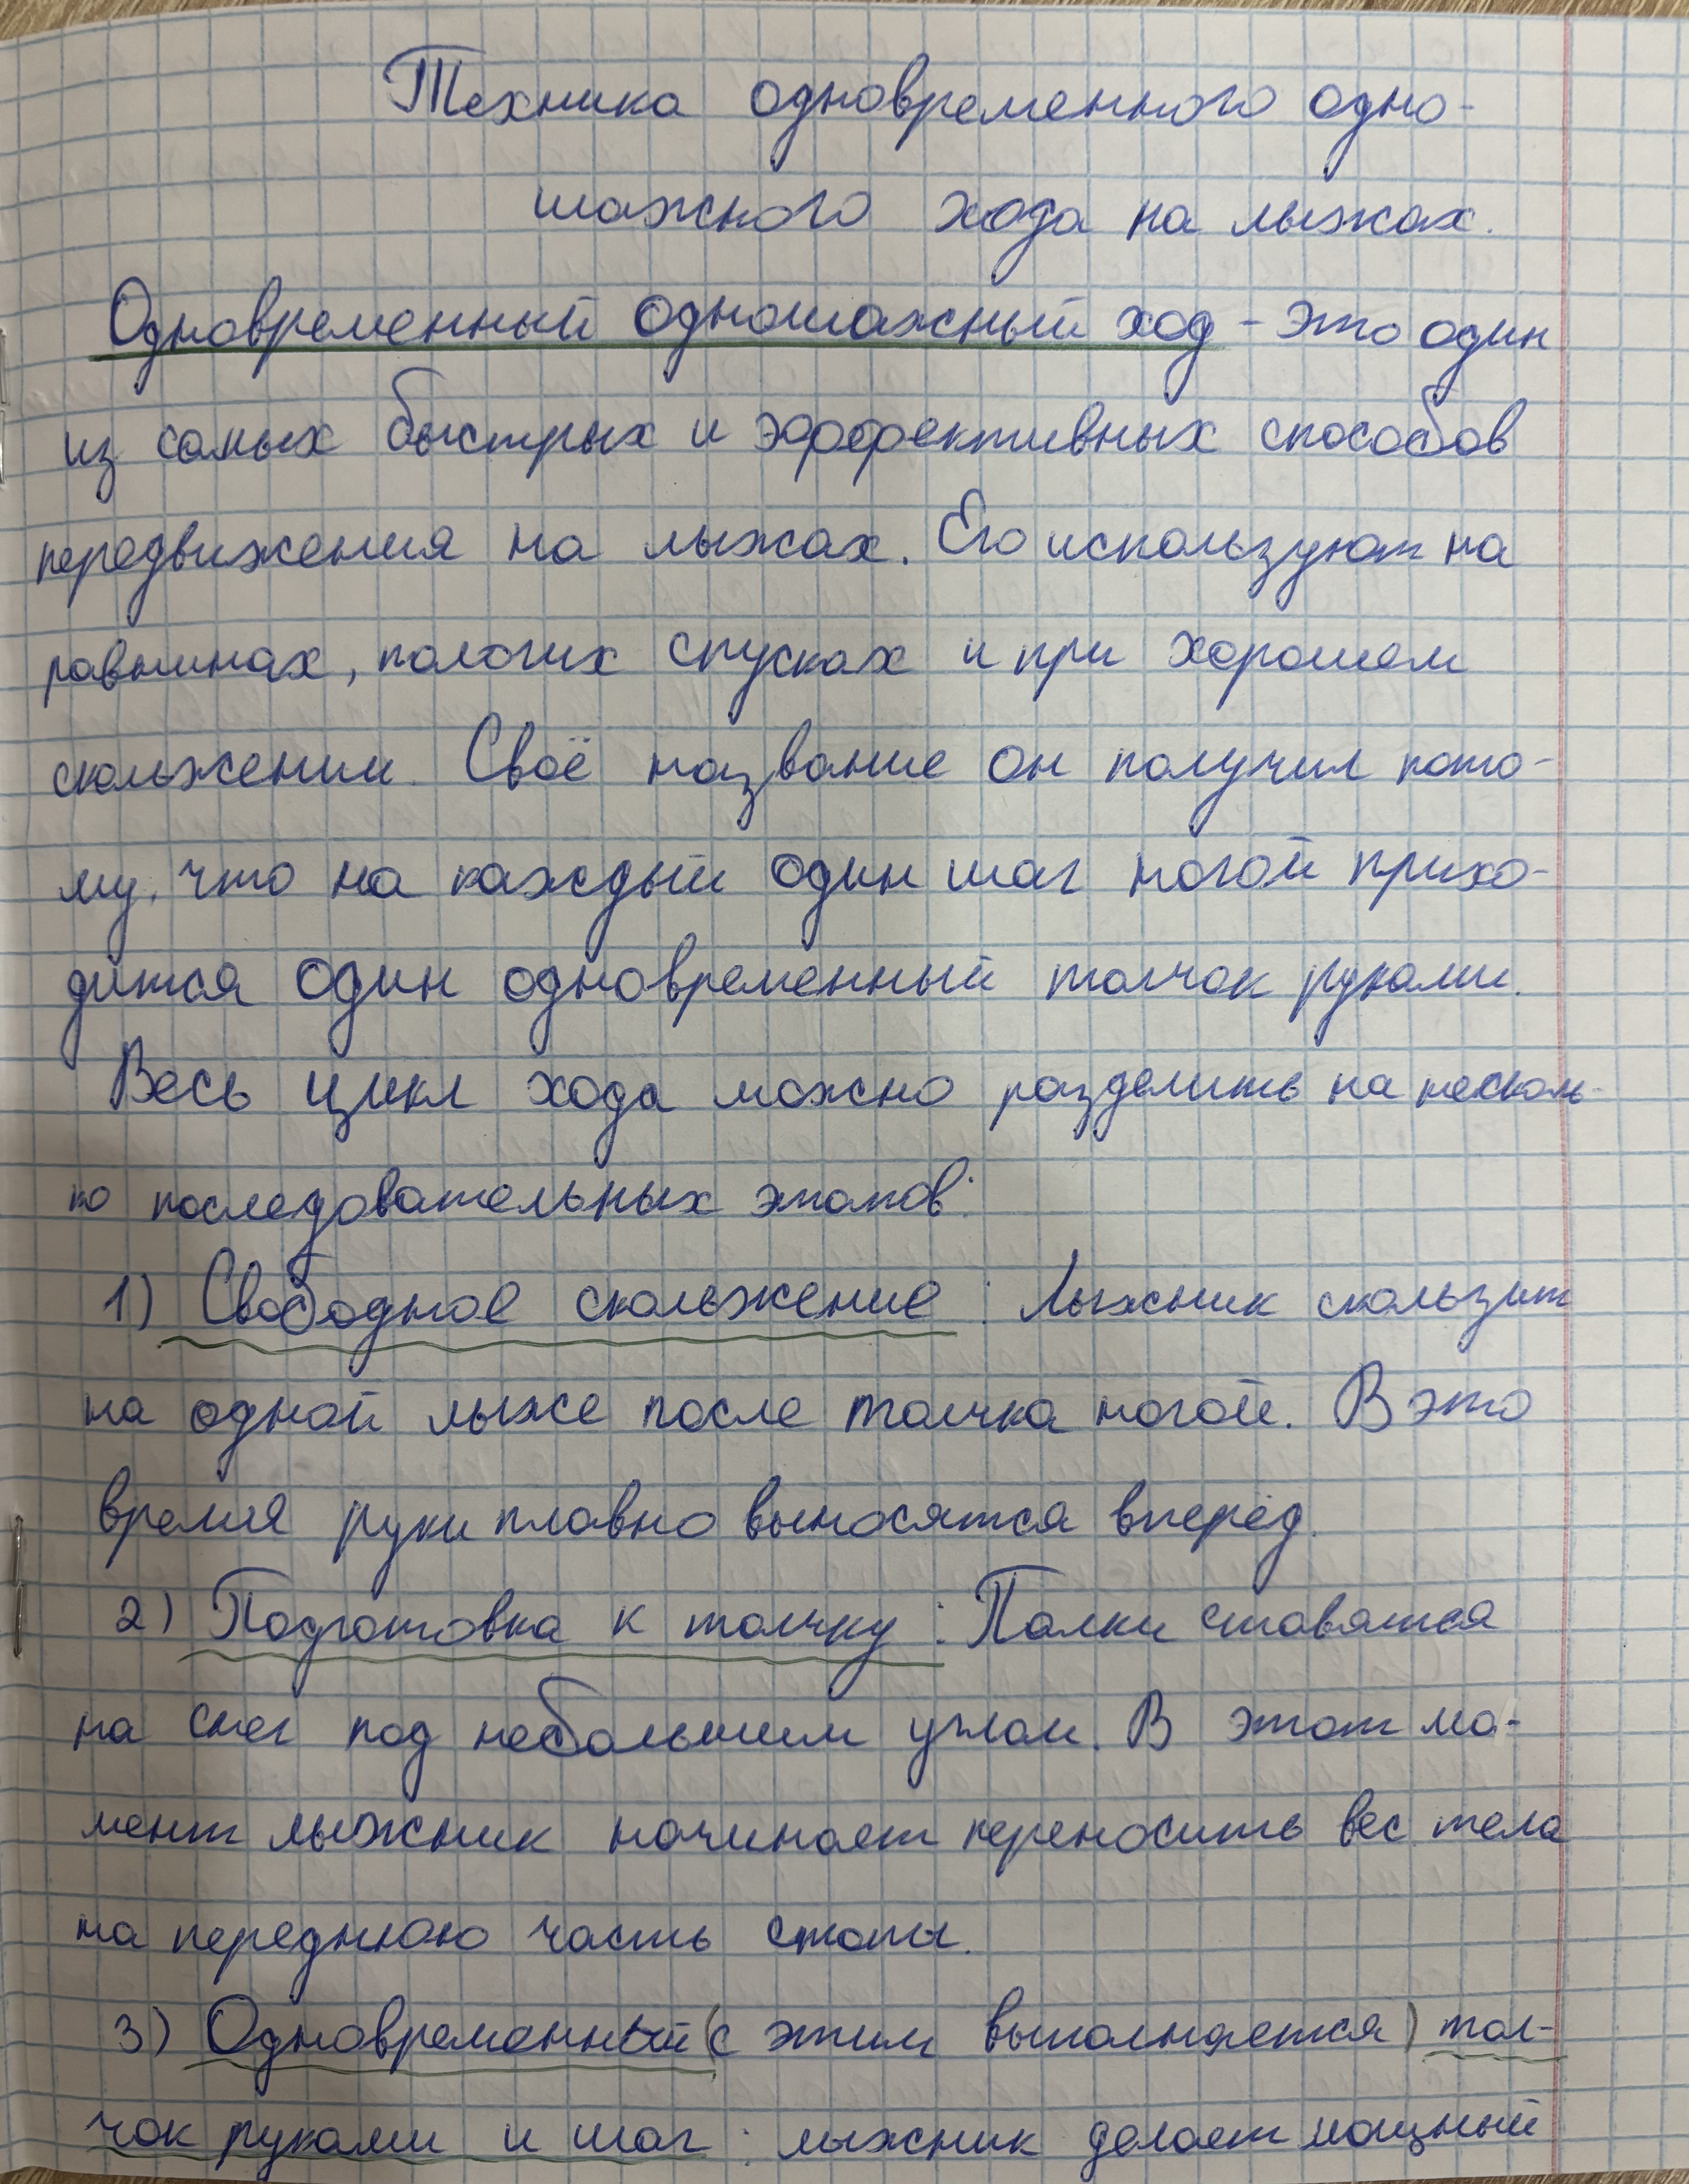 Техника одновременного одно-
шажного хода на лыжах.
Одновременный одношажный ход - это один
из самых быстрых и эффективных способов
передвижения на лыжах. Его используют на
равнинах, пологих спусках и при хорошем
скольжении. Своё название он получил пото-
му, что на каждый один шаг ногой прихо-
дится один одновременный толчок руками.
Весь цикл хода можно разделить на несколь-
ко последовательных этапов:
1) Свободное скольжение: Лыжник скользит
на одной лыже после толчка ногой. В это
время руки плавно выносятся вперёд.
2) Подготовка к толчку: Палки ставятся
на снег под небольшим углом. В этот мо-
мент лыжник начинает переносить вес тела
на переднюю часть стопы.
3) Одновременный (с этим выполняется) тол-
чок руками и шаг: лыжник делает мощный